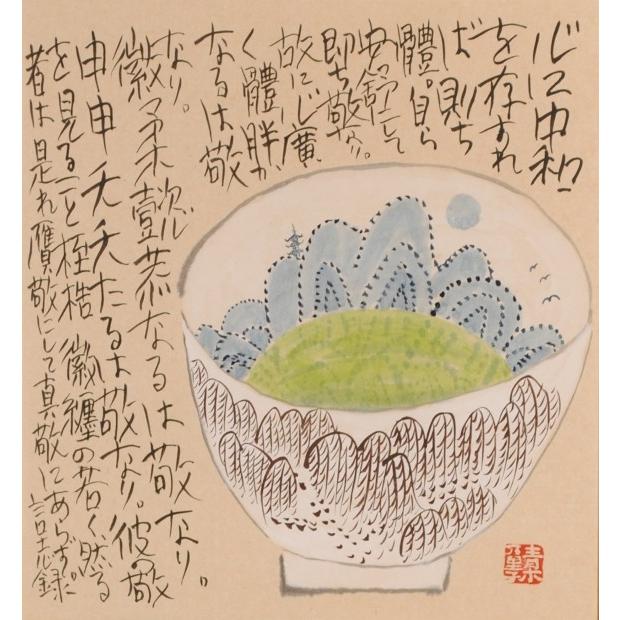 心に中和
を存すれ
ば則ち
體。自ら
安舒にして
即ち敬なり。
故に心廣
く體胖か
なるは敬
なり。
徽柔懿恭なるは敬なり。
申申夭夭たるは敬なり。彼の敬
を見ること桎梏徽纏の若く然る
者は是れ贋敬にして真敬にあらず。言志録